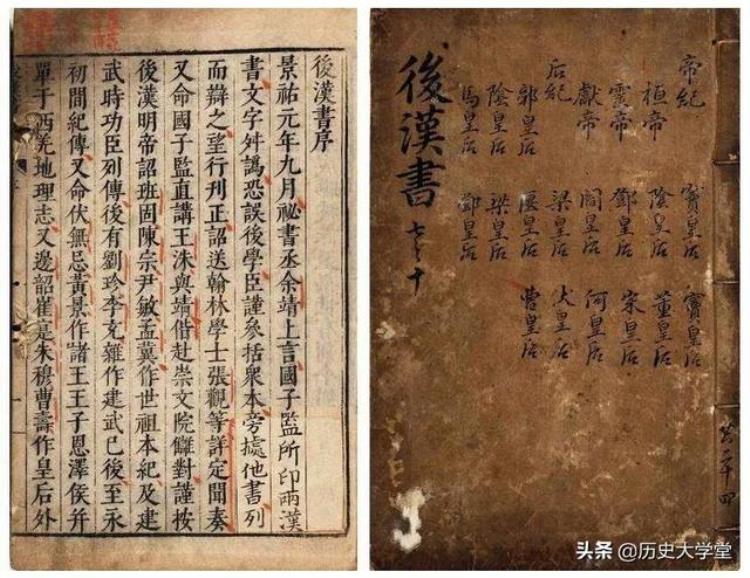 後漢書序
景祐元年九月祕書丞余靖上言國子監所印兩漢
書文字舛譌恐誤後學臣謹參括衆本旁據他書列
而辯之望行刊正詔送翰林學士張觀等詳定聞奏
又命國子監直講王洙與靖偕赴崇文院讎對謹按
後漢明帝詔班固陳宗尹敏孟冀作世祖本紀及建
武時功臣列傳後有劉珍李充雜作建武已後至永
初間紀傳又命伏無忌黃景作諸王王子恩澤侯并
單于西羌地理志又邊韶崔寔朱穆曹壽作皇后外
帝紀
桓帝
靈帝
獻帝
后紀
郭皇后
陰皇后
馬皇后
竇皇后
陰皇后
鄧皇后
閻皇后
梁皇后
匽皇后
梁皇后
鄧皇后
竇皇后
董皇后
宋皇后
何皇后
伏皇后
曹皇后
後漢書 七之十
共二十四
头条 @历史大学堂